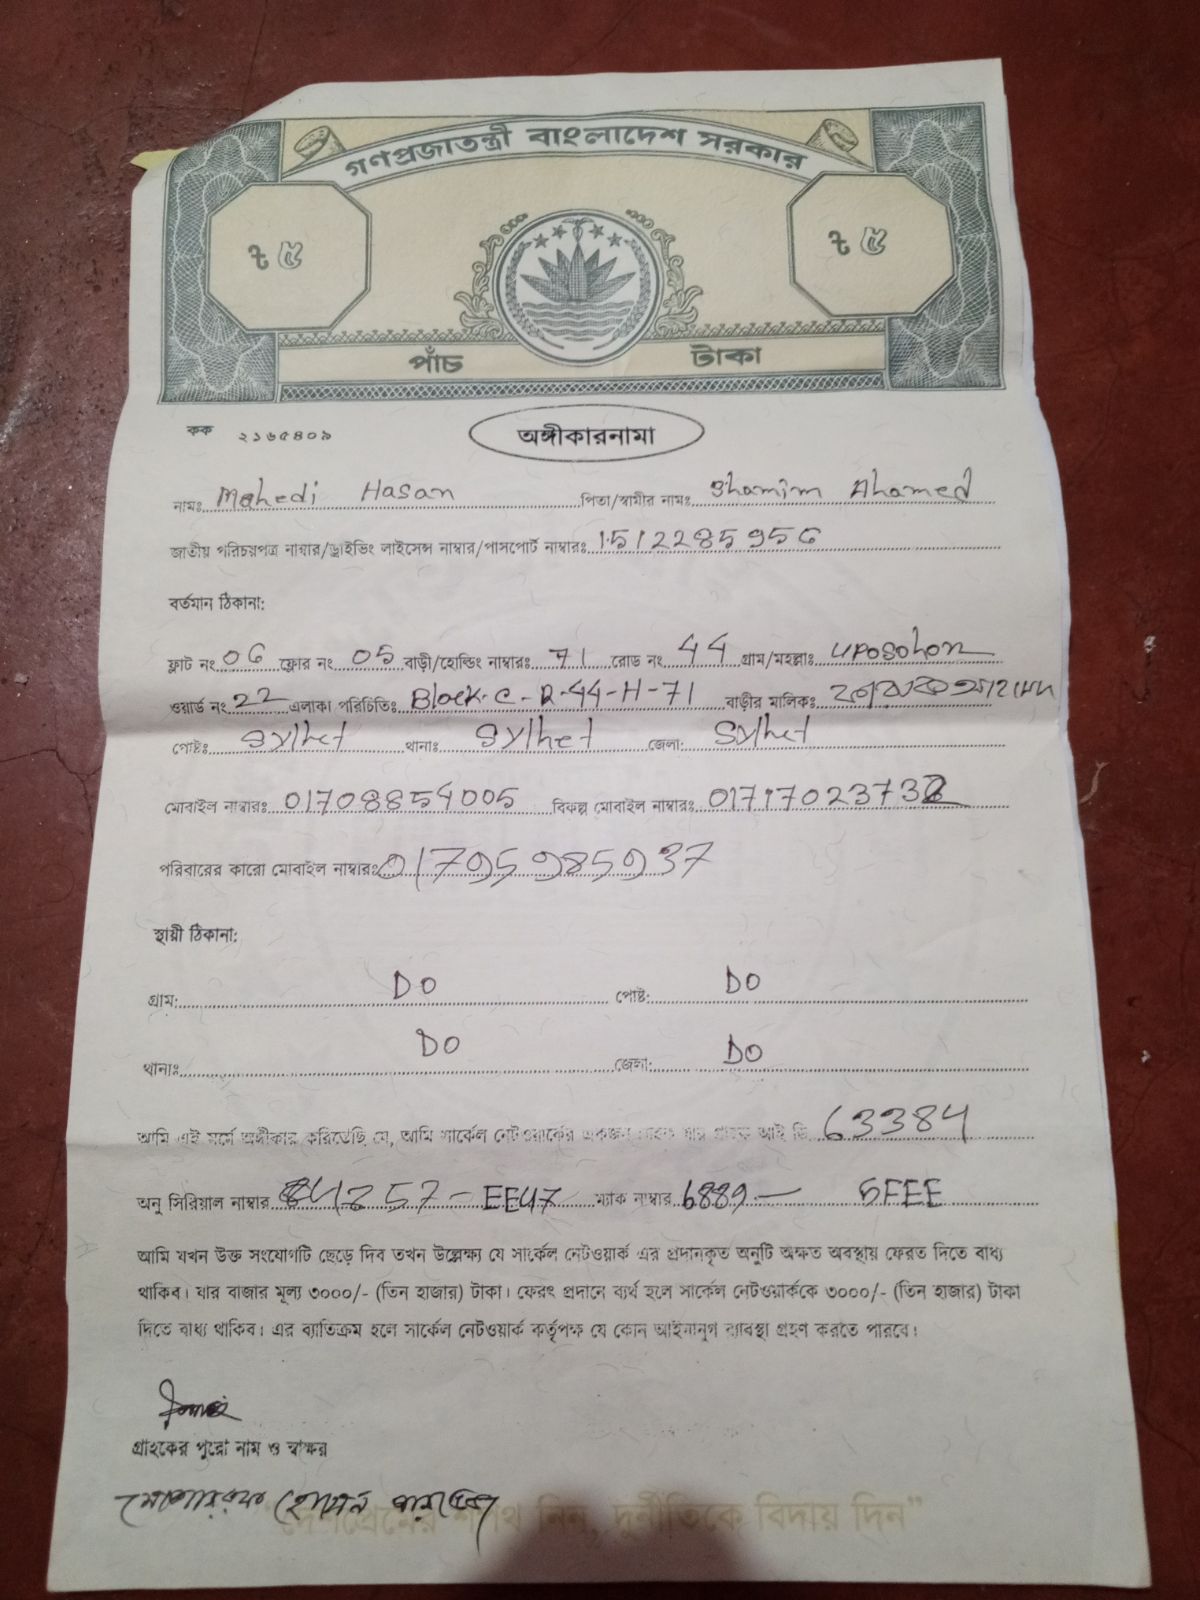 গণপ্রজাতন্ত্রী বাংলাদেশ সরকার
৳ ৫ ৳ ৫
পাঁচ টাকা
কক ২১৬৫৪০৯ অঙ্গীকারনামা
নামঃ Mahedi Hasan পিতা/স্বামীর নামঃ Shamim Ahamed
জাতীয় পরিচয়পত্র নাম্বার/ড্রাইভিং লাইসেন্স নাম্বার/পাসপোর্ট নাম্বারঃ 1512285956
বর্তমান ঠিকানা:
ফ্লাট নং 06 ফ্লোর নং 05 বাড়ী/হোল্ডিং নাম্বারঃ 71 রোড নং 44 গ্রাম/মহল্লাঃ Uposohon
ওয়ার্ড নং 22 এলাকা পরিচিতিঃ Block-C-R-44-H-71 বাড়ীর মালিকঃ
পোষ্টঃ Sylhet থানাঃ Sylhet জেলা: Sylhet
মোবাইল নাম্বারঃ 01708854005 বিকল্প মোবাইল নাম্বারঃ
পরিবারের কারো মোবাইল নাম্বারঃ 01795985937
স্থায়ী ঠিকানা:
গ্রাম: DO পোষ্ট: DO
থানাঃ DO জেলা: DO
আমি এই মর্মে অঙ্গীকার করিতেছি যে, আমি সার্কেল নেটওয়ার্কের একজন গ্রাহক যার গ্রাহক আই ডি 63384
অনু সিরিয়াল নাম্বার 84257-EE47 ম্যাক নাম্বার 6889- 5FEE
আমি যখন উক্ত সংযোগটি ছেড়ে দিব তখন উল্লেক্ষ্য যে সার্কেল নেটওয়ার্ক এর প্রদানকৃত অনুটি অক্ষত অবস্থায় ফেরত দিতে বাধ্য
থাকিব। যার বাজার মূল্য ৩০০০/- (তিন হাজার) টাকা। ফেরৎ প্রদানে ব্যর্থ হলে সার্কেল নেটওয়ার্ককে ৩০০০/- (তিন হাজার) টাকা
দিতে বাধ্য থাকিব। এর ব্যাতিক্রম হলে সার্কেল নেটওয়ার্ক কর্তৃপক্ষ যে কোন আইনানুগ ব্যাবস্থা গ্রহণ করতে পারবে।
গ্রাহকের পুরো নাম ও স্বাক্ষর
"দেশপ্রেমের শপথ নিন, দুর্নীতিকে বিদায় দিন"